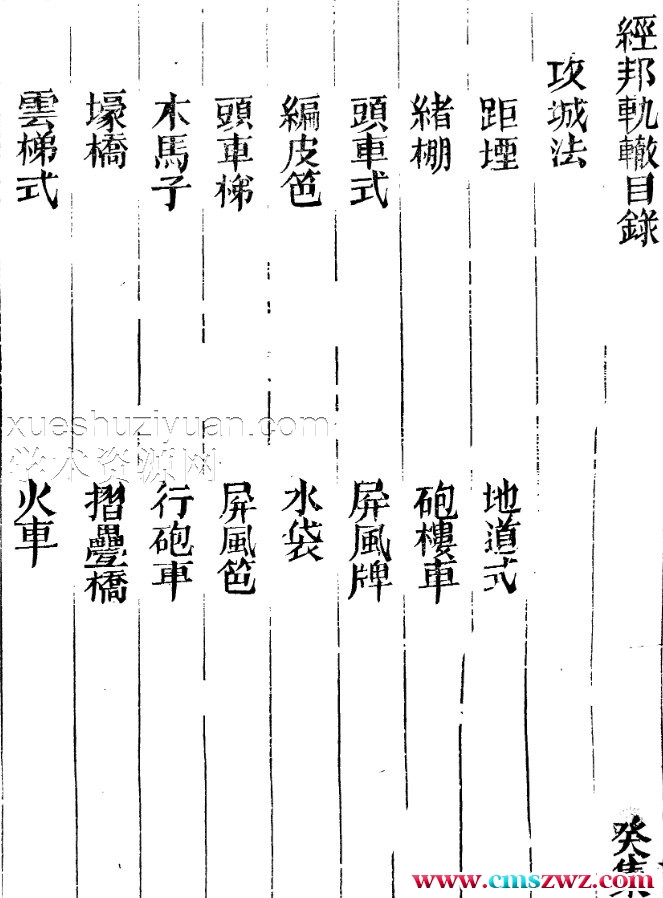 經邦軌轍目錄 癸集
攻城法
距堙 地道式
緒棚 砲樓車
頭車式 屏風牌
編皮笆 水袋
頭車梯 屏風笆
木馬子 行砲車
壕橋 摺疊橋
雲梯式 火車
xueshuziyuan.com
学术资源网
www.cmszwz.com